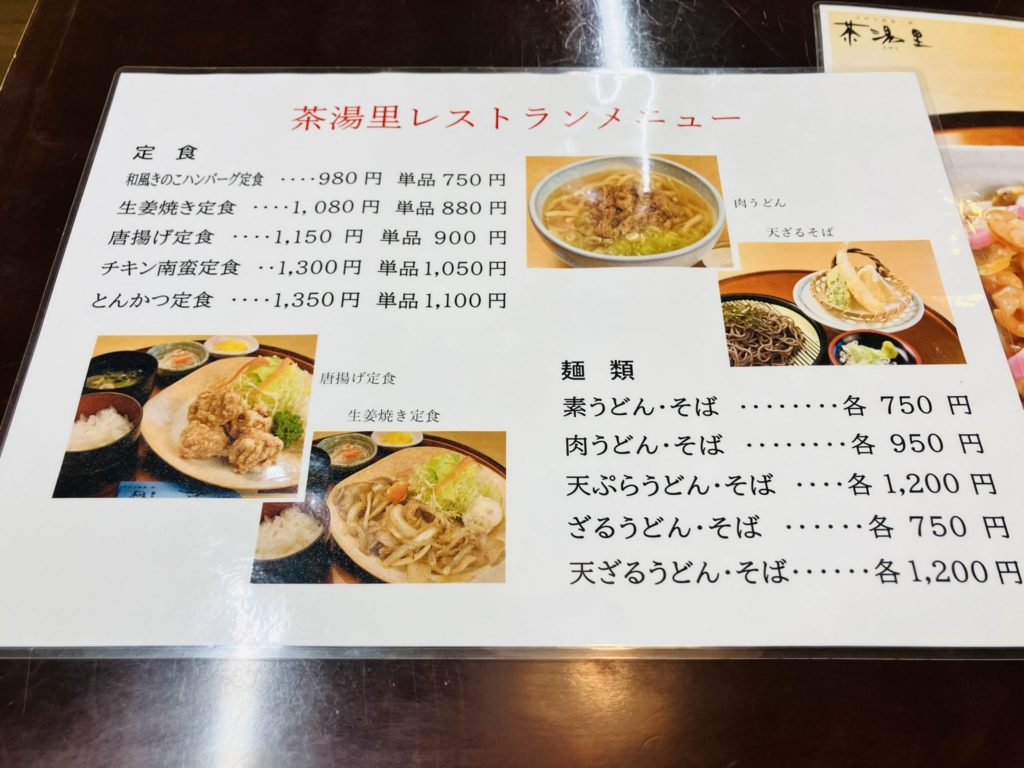 茶湯里
茶湯里レストランメニュー
定 食
和風きのこハンバーグ定食 ‥‥980円 単品750円
生姜焼き定食 ‥‥1,080円 単品880円
唐揚げ定食 ‥‥1,150 円 単品 900 円
チキン南蛮定食 ‥1,300円 単品1,050円
とんかつ定食 ‥‥1,350円 単品1,100円
肉うどん
天ざるそば
唐揚げ定食
生姜焼き定食
麺 類
素うどん・そば ‥‥‥‥各 750 円
肉うどん・そば ‥‥‥‥各 950 円
天ぷらうどん・そば ‥‥各 1,200 円
ざるうどん・そば ‥‥‥各 750 円
天ざるうどん・そば‥‥‥各1,200円